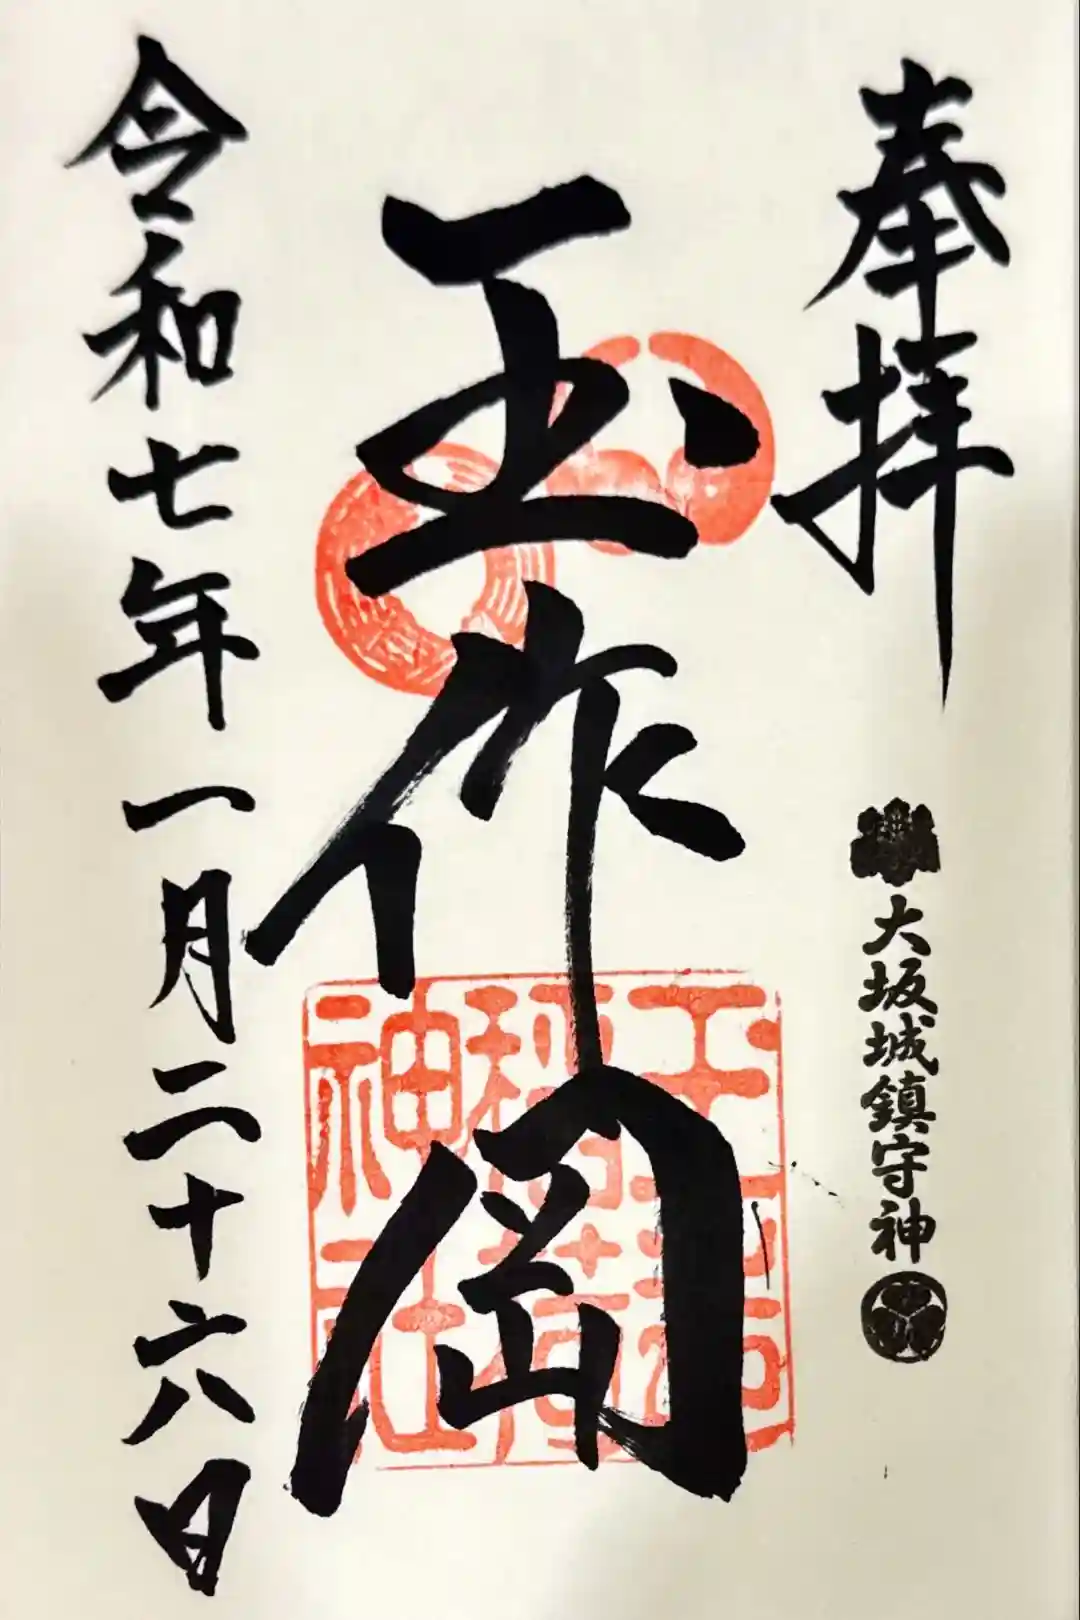 奉拝
大坂城鎮守神
玉作岡
玉造稲荷神社
令和七年一月二十六日